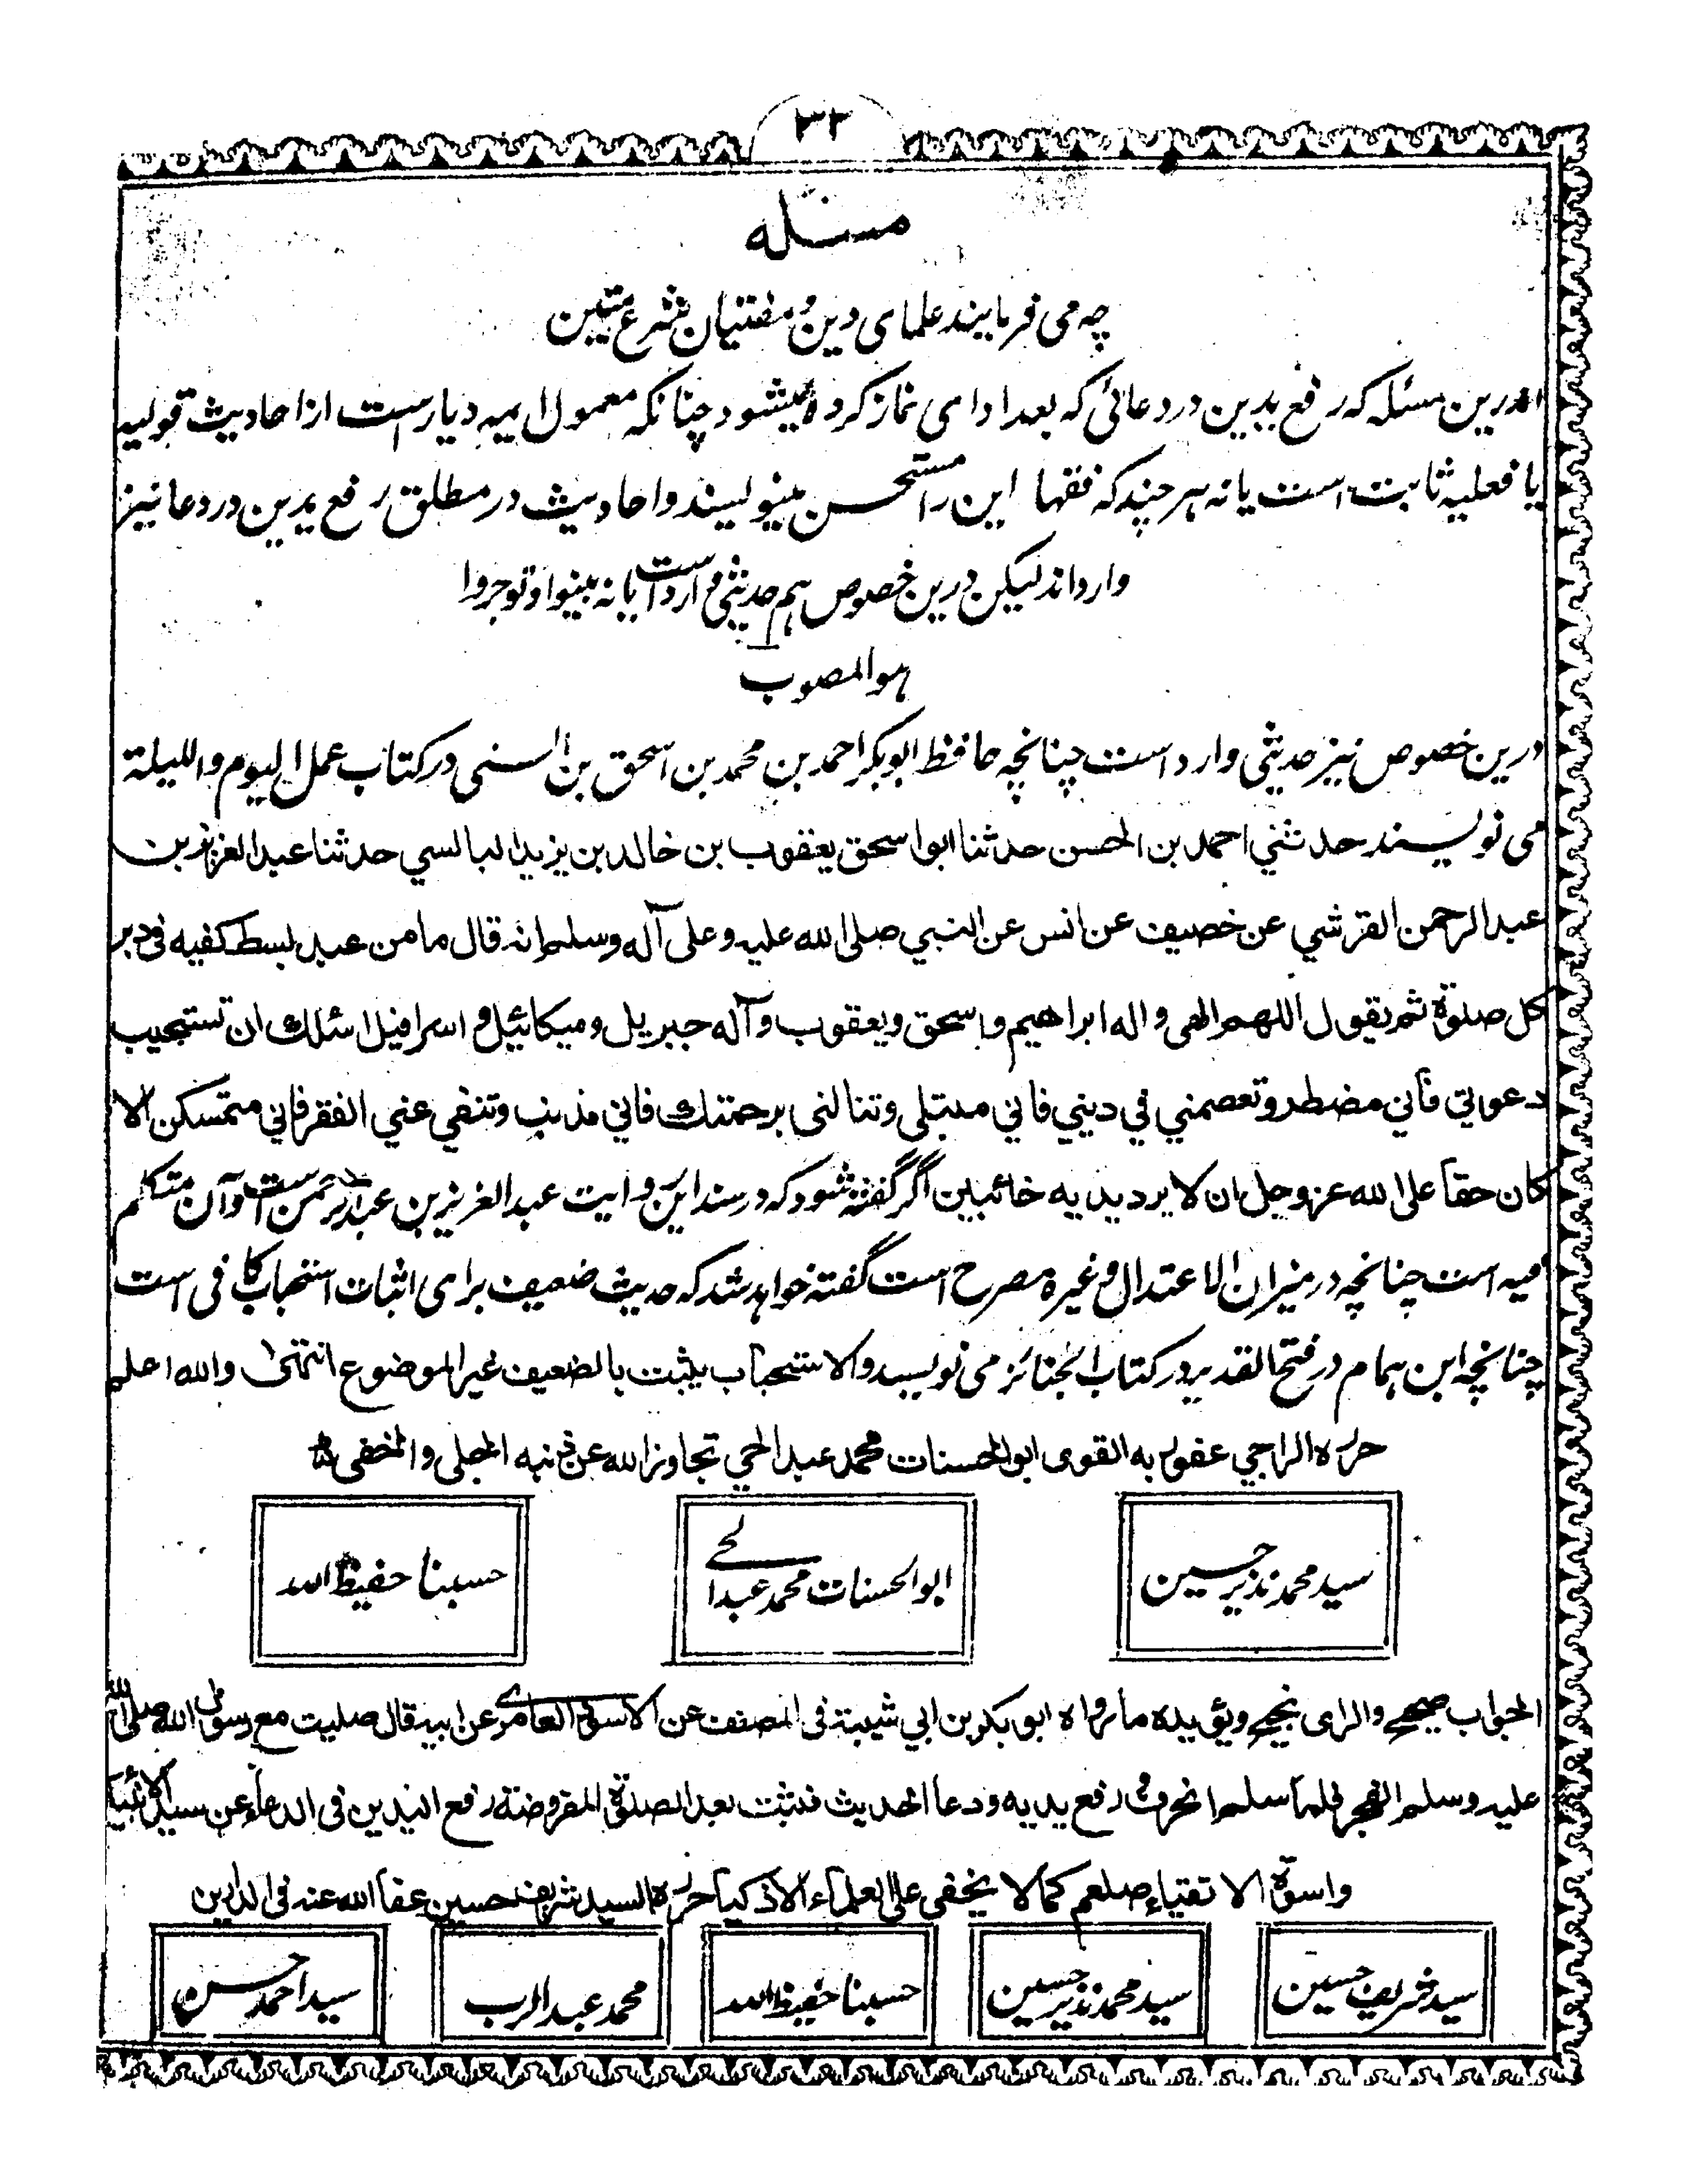 ٣٢
مسئله
چه می فرمایند علمای دین و مفتیان شرع متین
اندرین مسئله که رفع یدین در دعائی که بعد ادای نماز کرده میشود چنانکه معمول ایمه دیارست از احادیث قولیه
یا فعلیه ثابت است یا نه هر چند که فقها این را مستحسن مینویسند و احادیث در مطلق رفع یدین در دعا نیز
وارد اند لیکن درین خصوص هم حدیثی وارد است یا نه بینوا و توجروا
هو المصوب
درین خصوص نیز حدیثی وارد است چنانچه حافظ ابوبکر احمد بن محمد بن اسحق بن السنی در کتاب عمل الیوم واللیلة
می نویسند حدثني احمد بن الحسن حدثنا ابو اسحق يعقوب بن خالد بن يزيد البالسي حدثنا عبد العزيز بن
عبد الرحمن القرشي عن خصيف عن انس عن النبي صلى الله عليه وعلى آله وسلم انه قال ما من عبد بسط كفيه في دبر
كل صلوة ثم يقول اللهم الهي واله ابراهيم واسحق ويعقوب وآله جبريل وميكائيل واسرافيل اسئلك ان تستجيب
دعوتي فاني مضطر وتعصمني في ديني فاني مبتلى وتنالني برحمتك فاني مذنب وتنفي عني الفقر فاني متمسكن الا
كان حقا على الله عز وجل ان لا يرد يديه خائبين اگر گفته شود که در سند این روایت عبد العزیز بن عبد الرحمن است و آن متکلم
فیه است چنانچه در میزان الاعتدال وغیره مصرح است گفته خواهد شد که حدیث ضعیف برای اثبات استحباب کافی است
چنانچه ابن همام در فتح القدیر در کتاب الجنائز می نویسد والاستحباب يثبت بالضعيف غير الموضوع انتهى والله اعلم
حرره الراجي عفو ربه القوى ابو الحسنات محمد عبد الحي تجاوز الله عن ذنبه الجلى والخفى
سید محمد نذیر حسین
ابو الحسنات محمد عبد الحے
حسبنا حفیظ الله
الجواب صحيح والراى نجيح ويؤيده ما رواه ابو بكر بن ابي شيبة فى المصنف عن الاسود العامرى عن ابيه قال صليت مع رسول الله صلى الله
عليه وسلم الفجر فلما سلم انحرف ورفع يديه ودعا الحديث فثبت بعد الصلوة المفروضة رفع اليدين فى الدعاء عن سيد الانبياء
واسوة الاتقياء صلعم كما لا يخفى على العلماء الاذكياء حرره السيد شريف حسين عفا الله عنه فى الدارين
سید شریف حسین
سید محمد نذیر حسین
حسبنا حفیظ الله
محمد عبد الرب
سید احمد حسن